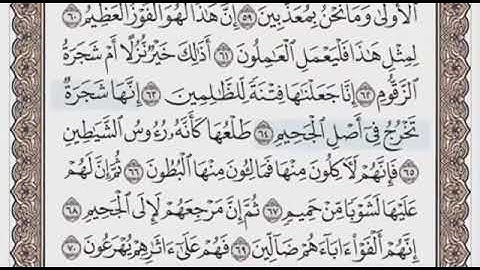 ٱلۡأُولَىٰ وَمَا نَحۡنُ بِمُعَذَّبِينَ ٥٩ إِنَّ هَٰذَا لَهُوَ ٱلۡفَوۡزُ ٱلۡعَظِيمُ ٦٠
لِمِثۡلِ هَٰذَا فَلۡيَعۡمَلِ ٱلۡعَٰمِلُونَ ٦١ أَذَٰلِكَ خَيۡرٞ نُّزُلًا أَمۡ شَجَرَةُ
ٱلزَّقُّومِ ٦٢ إِنَّا جَعَلۡنَٰهَا فِتۡنَةٗ لِّلظَّٰلِمِينَ ٦٣ إِنَّهَا شَجَرَةٞ
تَخۡرُجُ فِيٓ أَصۡلِ ٱلۡجَحِيمِ ٦٤ طَلۡعُهَا كَأَنَّهُۥ رُءُوسُ ٱلشَّيَٰطِينِ
٦٥ فَإِنَّهُمۡ لَأٓكِلُونَ مِنۡهَا فَمَالِـُٔونَ مِنۡهَا ٱلۡبُطُونَ ٦٦ ثُمَّ إِنَّ لَهُمۡ
عَلَيۡهَا لَشَوۡبٗا مِّنۡ حَمِيمٖ ٦٧ ثُمَّ إِنَّ مَرۡجِعَهُمۡ لَإِلَى ٱلۡجَحِيمِ ٦٨
إِنَّهُمۡ أَلۡفَوۡاْ ءَابَآءَهُمۡ ضَآلِّينَ ٦٩ فَهُمۡ عَلَىٰٓ ءَاثَٰرِهِمۡ يُهۡرَعُونَ ٧٠